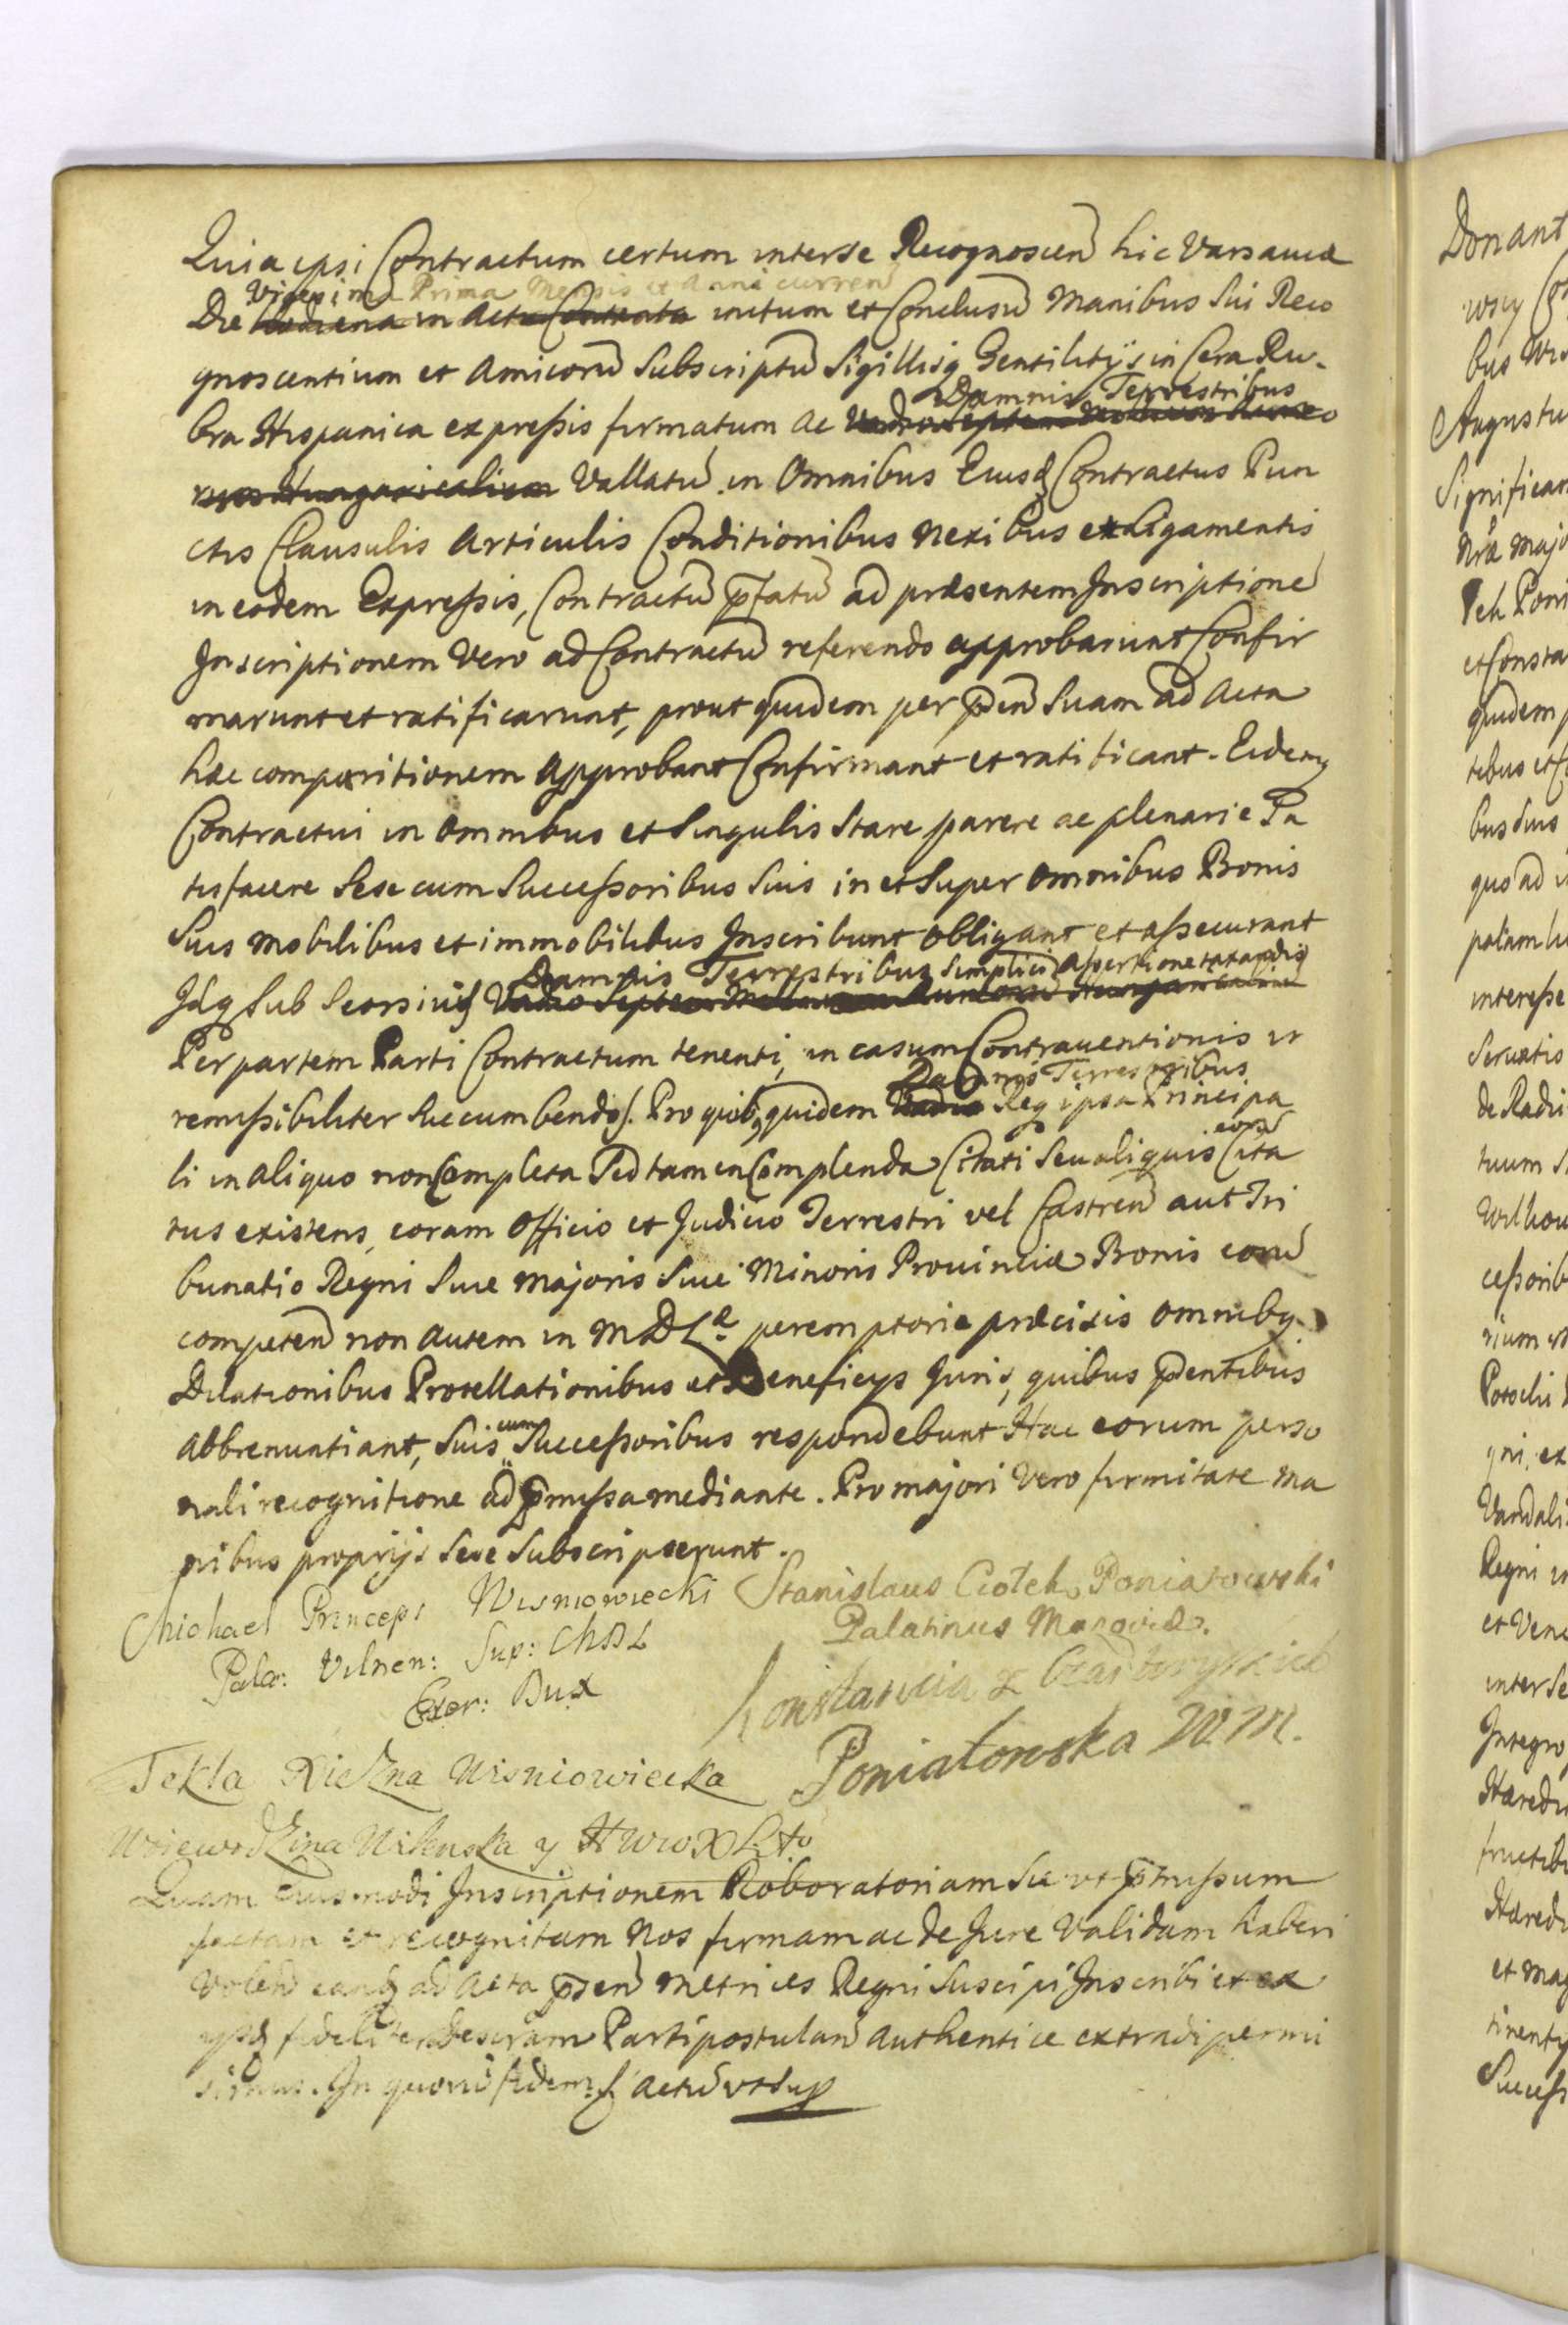 Quia ipsi Contractum certum interse Recognoscen hic Varsaviæ
Vigesima Prima Mensis et Anni curren
Die hodierna in Actu Contenta initum et Conclusū Manibus Sui Reco
gnoscentium et Amicorū Subscriptū Sigillisq Gentilitijs in Cera Ru-
Damnis Terrestribus
bra Hispanica expressis firmatum ac Vadio Septem Millium Aureo
rum Hungaricalium Vallatū in Omnibus Eiusd Contractus Pun
ctis Clausulis Articulis Conditionibus Nexibus et Ligamentis
in eodem Expressis, Contractū pfatū ad præsentem Inscriptionē
Inscriptionem Vero ad Contractū referendo approbarunt Confir
marunt et ratificarunt, prout quidem per pden Suam ad Acta
hæc comparitionem Approbant Confirmant et ratificant. Eidemq
Contractui in Omnibus et Singulis Stare parere ac plenarie Sa
tisfacere Sese cum Successoribus Suis in et Super Omnibus Bonis
Suis mobilibus et immobilibus Inscribunt Obligant et assecurant
Damnis Terrestribus Simplici Assertione taxandis
Idq Sub Seorsivis Vadio Septem Millium Aureorū Hungaricalium
Per partem Parti Contractum tenenti, in casum Contraventionis ir
Damnis Terrestribus
remissibiliter Succumbendis. Pro quibq quidem Vadio Req ipsa Principa
li in Aliquo non Completa Sed tamen Complenda Citati Seu aliquis eorū Cita
tus existens, coram Officio et Judicio Terrestri vel Castren aut Tri
bunatio Regni Sive Majoris Sive Minoris Provinciæ Bonis eorū
competen non Autem in MDLæ peremptorie præcisis Omnibq
Dilationibus Protellationibus et Beneficijs Juris, quibus pdentibus
Abbrenuntiant, Suis cum Successoribus respondebunt Hac eorum perso
nali recognitione ad pmissa mediante. Pro majori Vero firmitate Ma
nibus proprijs Sese Subscripserunt.
Michael Princeps Wisniowiecki
Pala: Vilnen: Sup: MDL
Exer: Dux
Stanislaus Ciołek Poniatowski
Palatinus Masoviæ.
Konstancia z Czartoryskich
Poniatowska W.M.
Tekla Xiezna Wisniowiecka
Woiewodzina Wilenska y H WWX Lto
Quam eiusmodi Inscriptionem Roboratoriam Sic ut pmissum
factam et recognitam Nos firmam ac de Jure Validam haberi
Volen eamq ad Acta pden Metrices Regni Suscipi Inscribi et ex
ijsd fideliter Descram Parti postulan Authentice extradi permi
simus. In quorū fidem. Actū ut Sup